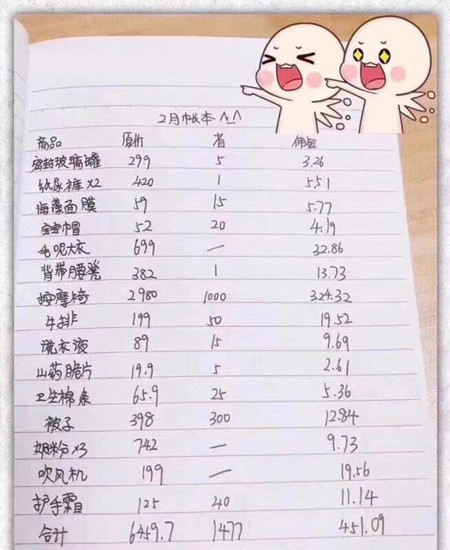 2月帐本 ^_^
商品 原价 省 佣金
密封玻璃罐 29.9 5 3.26
纸尿裤x2 420 1 5.51
海藻面膜 59 15 5.77
宝宝帽 52 20 4.19
毛呢大衣 699 — 32.86
背带腰凳 382 1 13.73
按摩椅 2980 1000 324.32
牛排 199 50 19.52
洗衣液 89 15 9.69
山药脆片 19.9 5 2.61
卫生棉条 65.9 25 5.36
被子 398 300 12.84
奶粉x3 742 — 9.73
吹风机 199 — 19.56
护手霜 125 40 11.14
合计 6459.7 1477 451.09